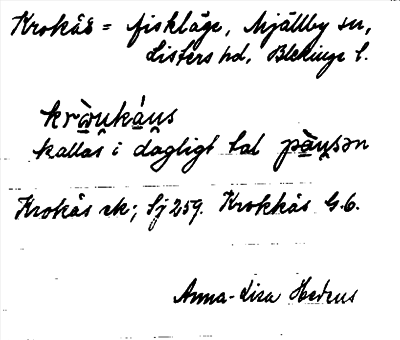 Krokås = fiskläge, Mjällby sn,
Listers hd, Blekinge l.
kràu̯kàu̯s
kallas i dagligt tal pàu̯sən
Krokås ek; Sj 259. Krokhås G.6.
Anna-Lisa Hedens